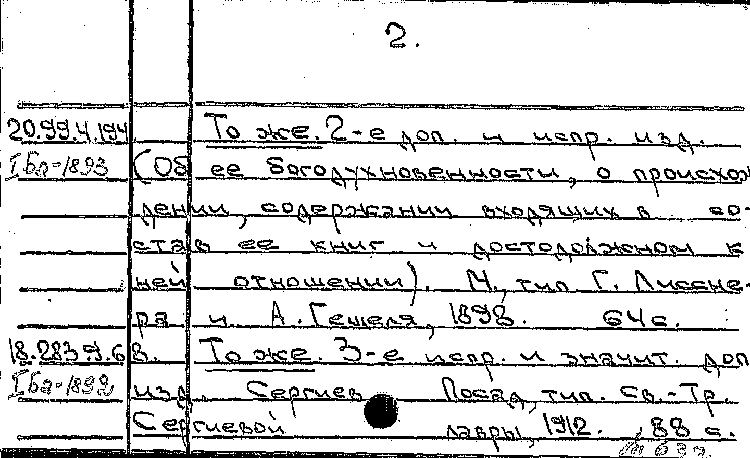 2.
20.99.4.194 То же. 2-е доп. и испр. изд.
IБа-1893 (Об ее богодухновенности, о происхож
дении, содержании входящих в со-
став ее книг и достодолжном к
ней отношении). М., тип. Г. Лисcне-
ра и А. Гешеля, 1898. 64 с.
18.283.9.68. То же. 3-е испр. и значит. доп
IБа-1892 изд. Сергиев Посад, тип. Св.-Тр.
Сергиевой лавры, 1912. 88 с.